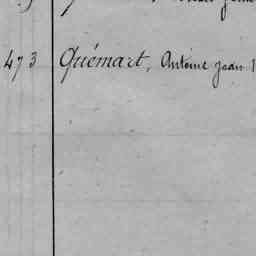 473 Quémart, Antoine Jean